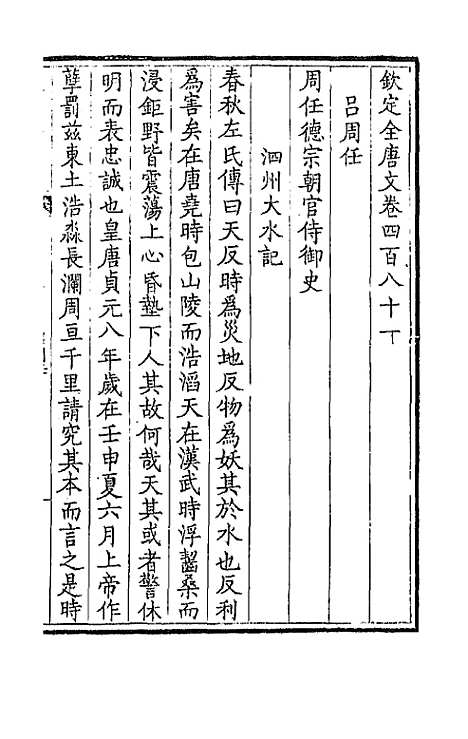 欽定全唐文卷四百八十一
呂周任
周任德宗朝官侍御史
泗州大水記
春秋左氏傳曰天反時爲災地反物爲妖其於水也反利
爲害矣在唐堯時包山陵而浩滔天在漢武時浮齧桑而
浸鉅野皆震蕩上心昏墊下人其故何哉天其或者警休
明而表忠誠也皇唐貞元八年歲在壬申夏六月上帝作
孽罰茲東土浩淼長瀾周亘千里請究其本而言之是時